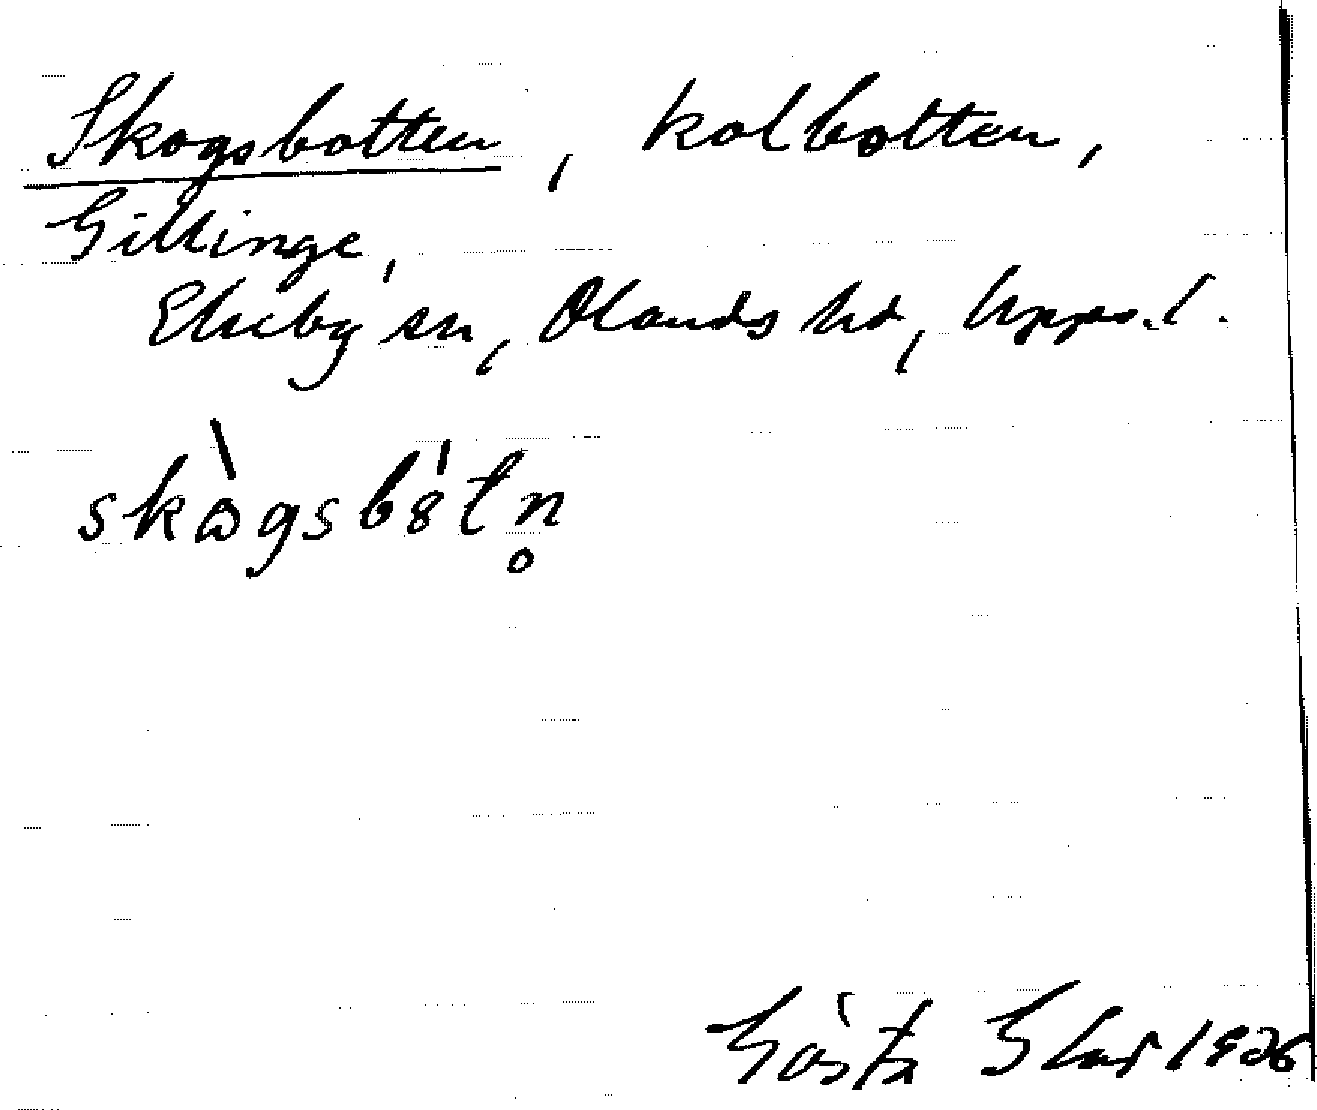 Skogsbotten, kolbotten,
Gillinge,
Ekeby sn, Olands hd, Uppl.
skògsbòtn̥
Gösta 1926